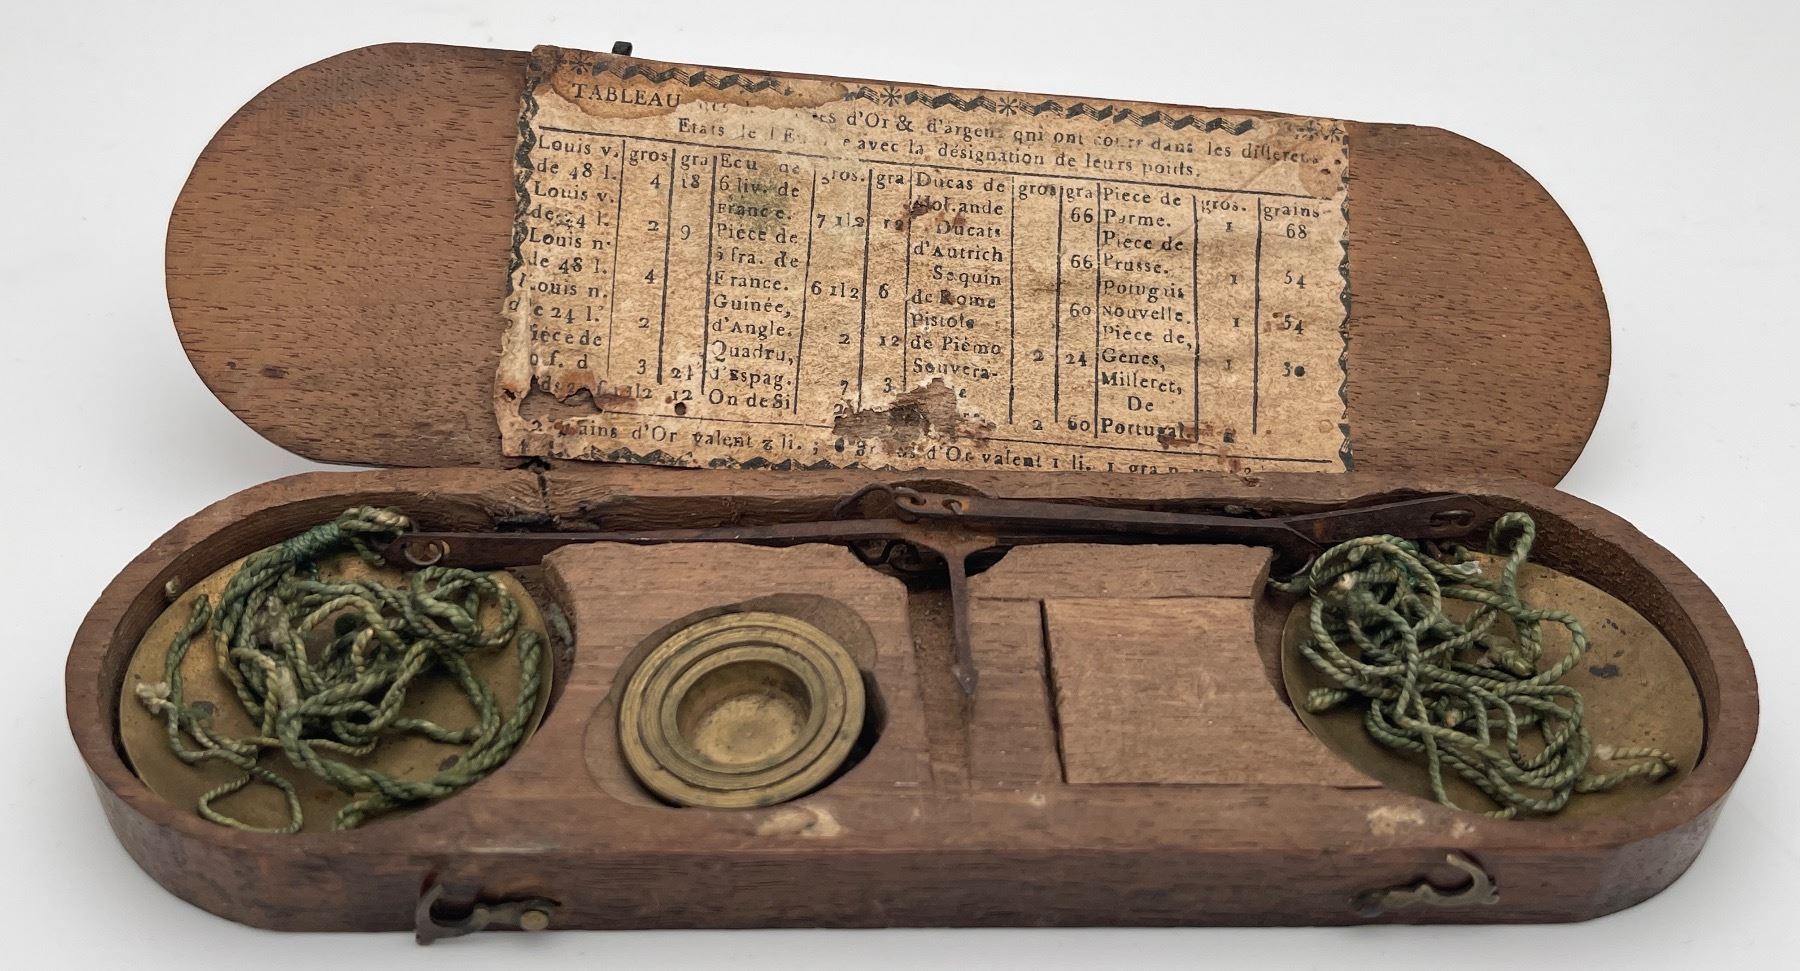 TABLEAU d'Or & d'argent qui ont cours dans les differens
Etats de l'Eu e avec la désignation de leurs poids.
Louis v. gros gra Ecu de gros. gra Ducas de gros gra Piece de gros. grains
de 48 l. 4 18 6 liv. de Hollande 66 Parme. 1 68
Louis v. France. 7 1|2 12 Ducats Piece de
de 24 l. 2 9 Piéce de d'Autrich 66 Prusse. 1 54
Louis n. 5 fra. de Sequin Potugais
de 48 l. 4 France. 6 1|2 6 de Rome 60 Nouvelle. 1 54
Louis n. Guinée, Pistole Piéce de,
de 24 l. 2 d'Angle. 2 12 de Piémo 2 24 Génes, 1 30
iéce de Quadru, Souvera- Milleret,
0 f. d 3 21 d'Espag. 7 3 De
de 20 f. 1|2 12 On de Si 2 2 60 Portugal.
ains d'Or valent 2 li. ; d'Or valent 1 li. 1 gra